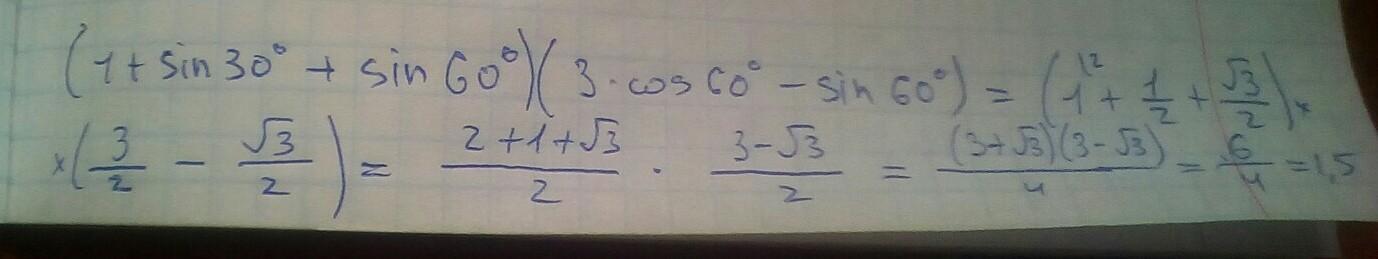 (1 + sin 30° + sin 60°)(3 · cos 60° − sin 60°) = (1^{\2} + \frac{1}{2} + \frac{√3}{2}) ×
× (\frac{3}{2} − \frac{√3}{2}) = \frac{2 + 1 + √3}{2} · \frac{3 − √3}{2} = \frac{(3 + √3)(3 − √3)}{4} = \frac{6}{4} = 1,5